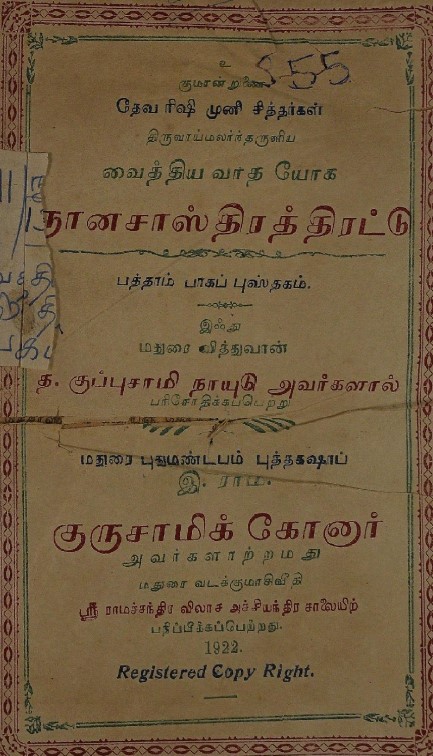 உ
குமரன்றுணை
S55
தேவ ரிஷி முனி சித்தர்கள்
திருவாய்மலர்ந்தருளிய
வைத்திய வாத யோக
ஞானசாஸ்திரத்திரட்டு
பத்தாம் பாகப் புஸ்தகம்.
இஃது
மதுரை வித்துவான்
த. குப்புசாமி நாயுடு அவர்களால்
பரிசோதிக்கப்பெற்று
மதுரை புதுமண்டபம் புத்தகஷாப்
இ. ராம.
குருசாமிக் கோனார்
அவர்களாற்றமது
மதுரை வடக்குமாசிவீதி
ஸ்ரீ ராமச்சந்திர விலாச அச்சியந்திர சாலையிற்
பதிப்பிக்கப்பெற்றது.
1922.
Registered Copy Right.